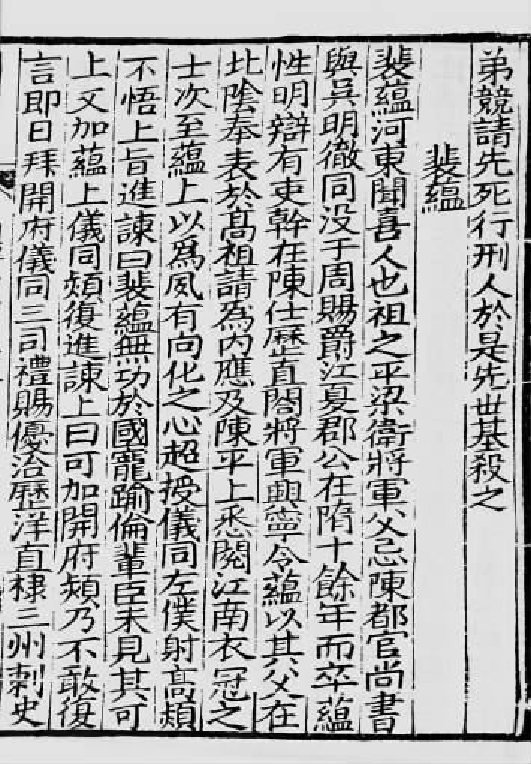 弟競請先死行刑人於是先世基殺之
裴蘊
裴蘊河東聞喜人也祖之平梁衛將軍父忌陳都官尚書
與吳明徹同没于周賜爵江夏郡公在隋十餘年而卒蘊
性明辯有吏幹在陳仕歷直閤將軍興寧令蘊以其父在
北陰奉表於髙祖請爲内應及陳平上悉閱江南衣冠之
士次至蘊上以爲夙有向化之心超授儀同左僕射髙熲
不悟上旨進諫曰裴蘊無功於國寵踰倫輩臣未見其可
上又加蘊上儀同熲復進諫上曰可加開府熲乃不敢復
言即日拜開府儀同三司禮賜優洽歷洋直棣三州刺史